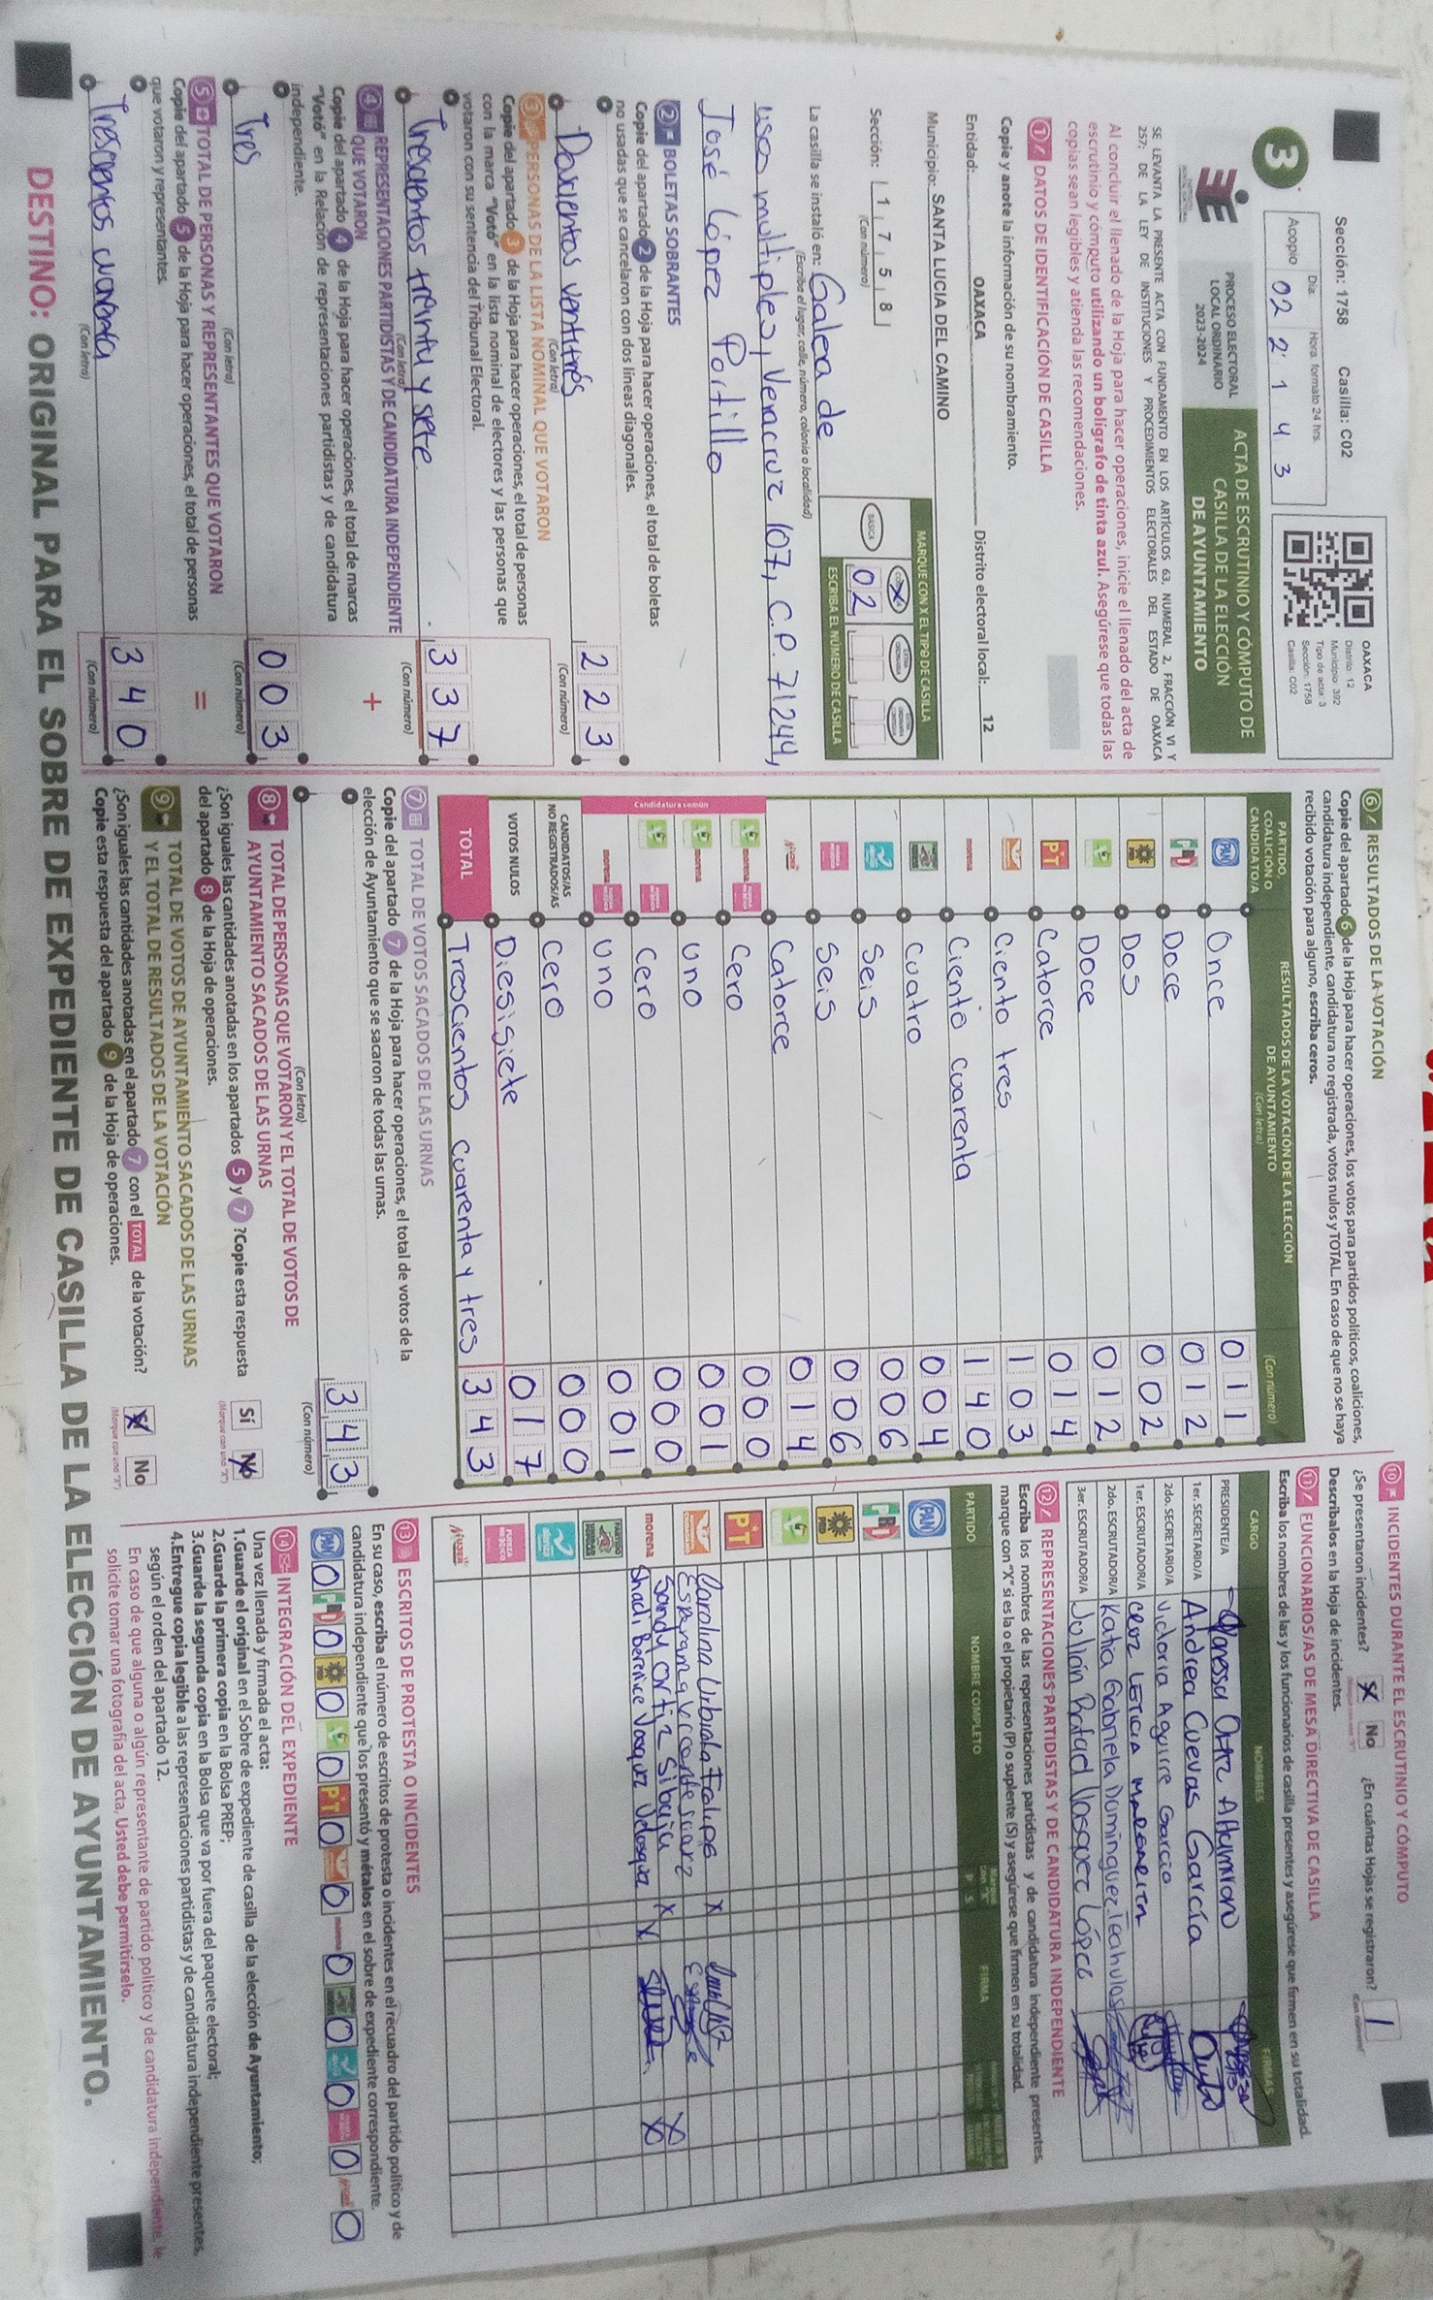 Sección: 1758 Casilla: C02
Día. Hora. formato 24 hrs.
Acopio 02 21 43
OAXACA
Distrito 12
Municipio 392
Tipo de acta 3
Sección: 1758
Casilla: C02
3
PROCESO ELECTORAL
LOCAL ORDINARIO
2023-2024
ACTA DE ESCRUTINIO Y CÓMPUTO DE
CASILLA DE LA ELECCIÓN
DE AYUNTAMIENTO
SE LEVANTA LA PRESENTE ACTA CON FUNDAMENTO EN LOS ARTÍCULOS 63, NUMERAL 2, FRACCIÓN VI Y
257; DE LA LEY DE INSTITUCIONES Y PROCEDIMIENTOS ELECTORALES DEL ESTADO DE OAXACA
Al concluir el llenado de la Hoja para hacer operaciones, inicie el llenado del acta de
escrutinio y cómputo utilizando un bolígrafo de tinta azul. Asegúrese que todas las
copias sean legibles y atienda las recomendaciones.
1 DATOS DE IDENTIFICACIÓN DE CASILLA
Copie y anote la información de su nombramiento.
Entidad: OAXACA Distrito electoral local: 12
Municipio: SANTA LUCIA DEL CAMINO
Sección: 1 7 5 8
(Con número)
MARQUE CON X EL TIPO DE CASILLA
BÁSICA
ESCRIBA EL NÚMERO DE CASILLA
02
La casilla se instaló en: Galera de
(Escriba el lugar, calle, número, colonia o localidad)
usos multiples, Veracruz 107, C.P. 71244,
José López Portillo
2 BOLETAS SOBRANTES
Copie del apartado 2 de la Hoja para hacer operaciones, el total de boletas
no usadas que se cancelaron con dos líneas diagonales.
Doscientos ventitrés 223
(Con letra) (Con número)
3 PERSONAS DE LA LISTA NOMINAL QUE VOTARON
Copie del apartado 3 de la Hoja para hacer operaciones, el total de personas
con la marca "Votó" en la lista nominal de electores y las personas que
votaron con su sentencia del Tribunal Electoral.
Trescientos treinta y siete 337
(Con letra) (Con número)
4 REPRESENTACIONES PARTIDISTAS Y DE CANDIDATURA INDEPENDIENTE
QUE VOTARON +
Copie del apartado 4 de la Hoja para hacer operaciones, el total de marcas
"Votó" en la Relación de representaciones partidistas y de candidatura
independiente.
Tres 003
(Con letra) (Con número)
5 TOTAL DE PERSONAS Y REPRESENTANTES QUE VOTARON =
Copie del apartado 5 de la Hoja para hacer operaciones, el total de personas
que votaron y representantes.
Trescientos cuarenta 340
(Con letra) (Con número)
6 RESULTADOS DE LA VOTACIÓN
Copie del apartado 6 de la Hoja para hacer operaciones, los votos para partidos políticos, coaliciones,
candidatura independiente, candidatura no registrada, votos nulos y TOTAL. En caso de que no se haya
recibido votación para alguno, escriba ceros.
PARTIDO, COALICIÓN O CANDIDATO/A
RESULTADOS DE LA VOTACIÓN DE LA ELECCIÓN DE AYUNTAMIENTO
(Con letra) (Con número)
PAN Once 011
PRI Doce 012
PRD Dos 002
Doce 012
PT Catorce 014
Ciento tres 103
morena Ciento cuarenta 140
cuatro 004
Seis 006
Seis 006
Catorce 014
Candidatura común
morena Cero 000
morena uno 001
Cero 000
morena uno 001
CANDIDATOS/AS
NO REGISTRADOS/AS cero 000
VOTOS NULOS Diesisiete 017
TOTAL Trescientos cuarenta y tres 343
7 TOTAL DE VOTOS SACADOS DE LAS URNAS
Copie del apartado 7 de la Hoja para hacer operaciones, el total de votos de la
elección de Ayuntamiento que se sacaron de todas las urnas.
343
(Con letra) (Con número)
8 TOTAL DE PERSONAS QUE VOTARON Y EL TOTAL DE VOTOS DE
AYUNTAMIENTO SACADOS DE LAS URNAS
¿Son iguales las cantidades anotadas en los apartados 5 y 7 ? Copie esta respuesta
del apartado 8 de la Hoja de operaciones.
Sí No
9 TOTAL DE VOTOS DE AYUNTAMIENTO SACADOS DE LAS URNAS
Y EL TOTAL DE RESULTADOS DE LA VOTACIÓN
¿Son iguales las cantidades anotadas en el apartado 7 con el TOTAL de la votación?
Copie esta respuesta del apartado 9 de la Hoja de operaciones.
Sí No
10 INCIDENTES DURANTE EL ESCRUTINIO Y CÓMPUTO
¿Se presentaron incidentes? No ¿En cuántas Hojas se registraron? 1
Descríbalos en la Hoja de incidentes.
11 FUNCIONARIOS/AS DE MESA DIRECTIVA DE CASILLA
Escriba los nombres de las y los funcionarios de casilla presentes y asegúrese que firmen en su totalidad.
CARGO NOMBRES FIRMAS
PRESIDENTE/A
1er. SECRETARIO/A Andrea Cuevas García
2do. SECRETARIO/A Victoria Aguirre Garcia
1er. ESCRUTADOR/A
2do. ESCRUTADOR/A Katia Gabriela Dominguez
3er. ESCRUTADOR/A López
12 REPRESENTACIONES PARTIDISTAS Y DE CANDIDATURA INDEPENDIENTE
Escriba los nombres de las representaciones partidistas y de candidatura independiente presentes,
marque con "X" si es la o el propietario (P) o suplente (S) y asegúrese que firmen en su totalidad.
PARTIDO NOMBRE COMPLETO FIRMA
PAN
PRI
PRD
PT Carolina X
Esperanza X
morena Sandy Ortiz X X
Shadi Berenice Vasquez X
13 ESCRITOS DE PROTESTA O INCIDENTES
En su caso, escriba el número de escritos de protesta o incidentes en el recuadro del partido político y de
candidatura independiente que los presentó y métalos en el sobre de expediente correspondiente.
PAN 0 PRI 0 PRD 0 0 PT 0 0 0 0 0 0 0
14 INTEGRACIÓN DEL EXPEDIENTE
Una vez llenada y firmada el acta:
1.Guarde el original en el Sobre de expediente de casilla de la elección de Ayuntamiento;
2.Guarde la primera copia en la Bolsa PREP;
3.Guarde la segunda copia en la Bolsa que va por fuera del paquete electoral;
4.Entregue copia legible a las representaciones partidistas y de candidatura independiente presentes,
según el orden del apartado 12.
En caso de que alguna o algún representante de partido político y de candidatura independiente, le
solicite tomar una fotografía del acta, Usted debe permitírselo.
DESTINO: ORIGINAL PARA EL SOBRE DE EXPEDIENTE DE CASILLA DE LA ELECCIÓN DE AYUNTAMIENTO.